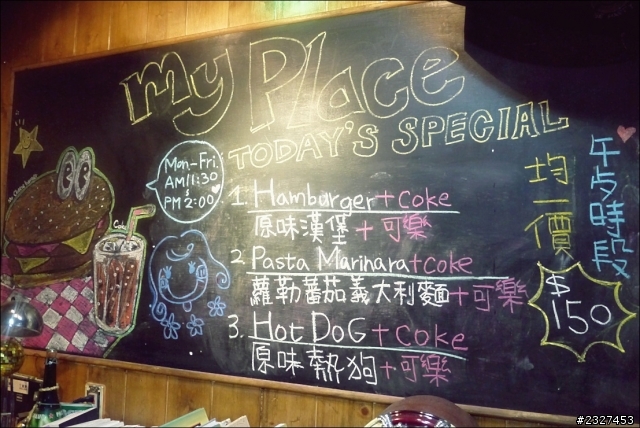 my Place
TODAY'S SPECIAL
Mon-Fri.
AM11:30
PM2:00
1. Hamburger + coke
原味漢堡 + 可樂
2 Pasta Marinara + coke
蘿勒蕃茄義大利麵 + 可樂
3. Hot DoG + coke
原味熱狗 + 可樂
均一價
午占時段
$150
Coke
#2327453